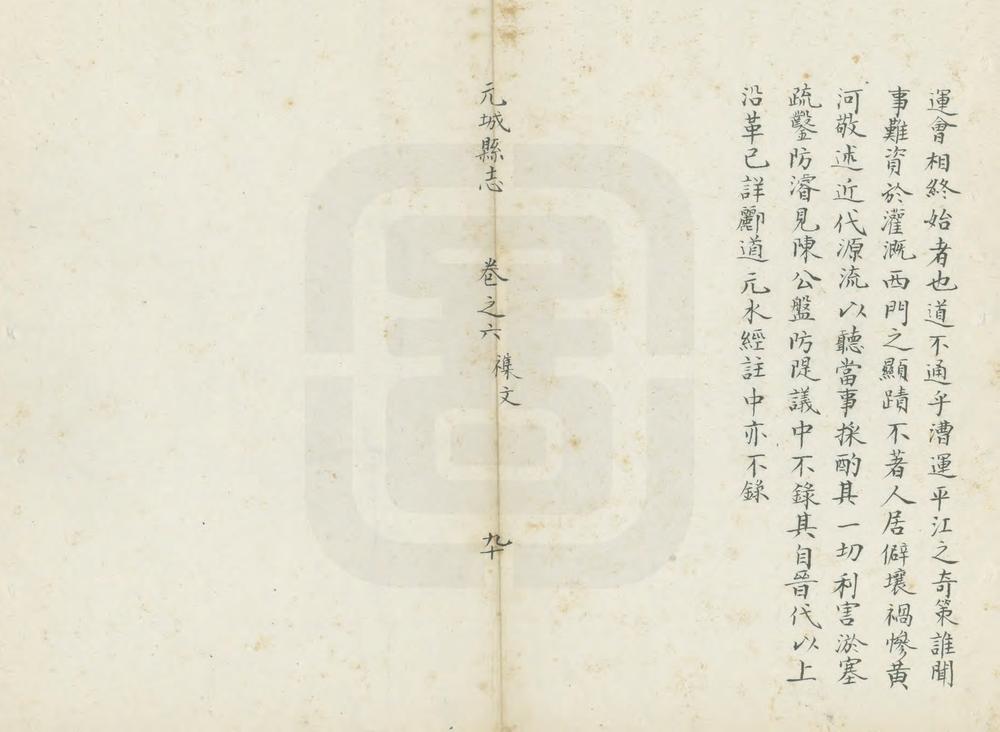 運會相終始者也道不通乎漕運平江之奇策誰聞
事難資於灌溉西門之顯蹟不著人居僻壤禍慘黄
河敬述近代源流以聽當事採酌其一切利害淤塞
疏鑿防濬見陳公盤防隄議中不錄其自晉代以上
沿革已詳酈道元水經註中亦不錄
元城縣志 卷之六 襍文 九十